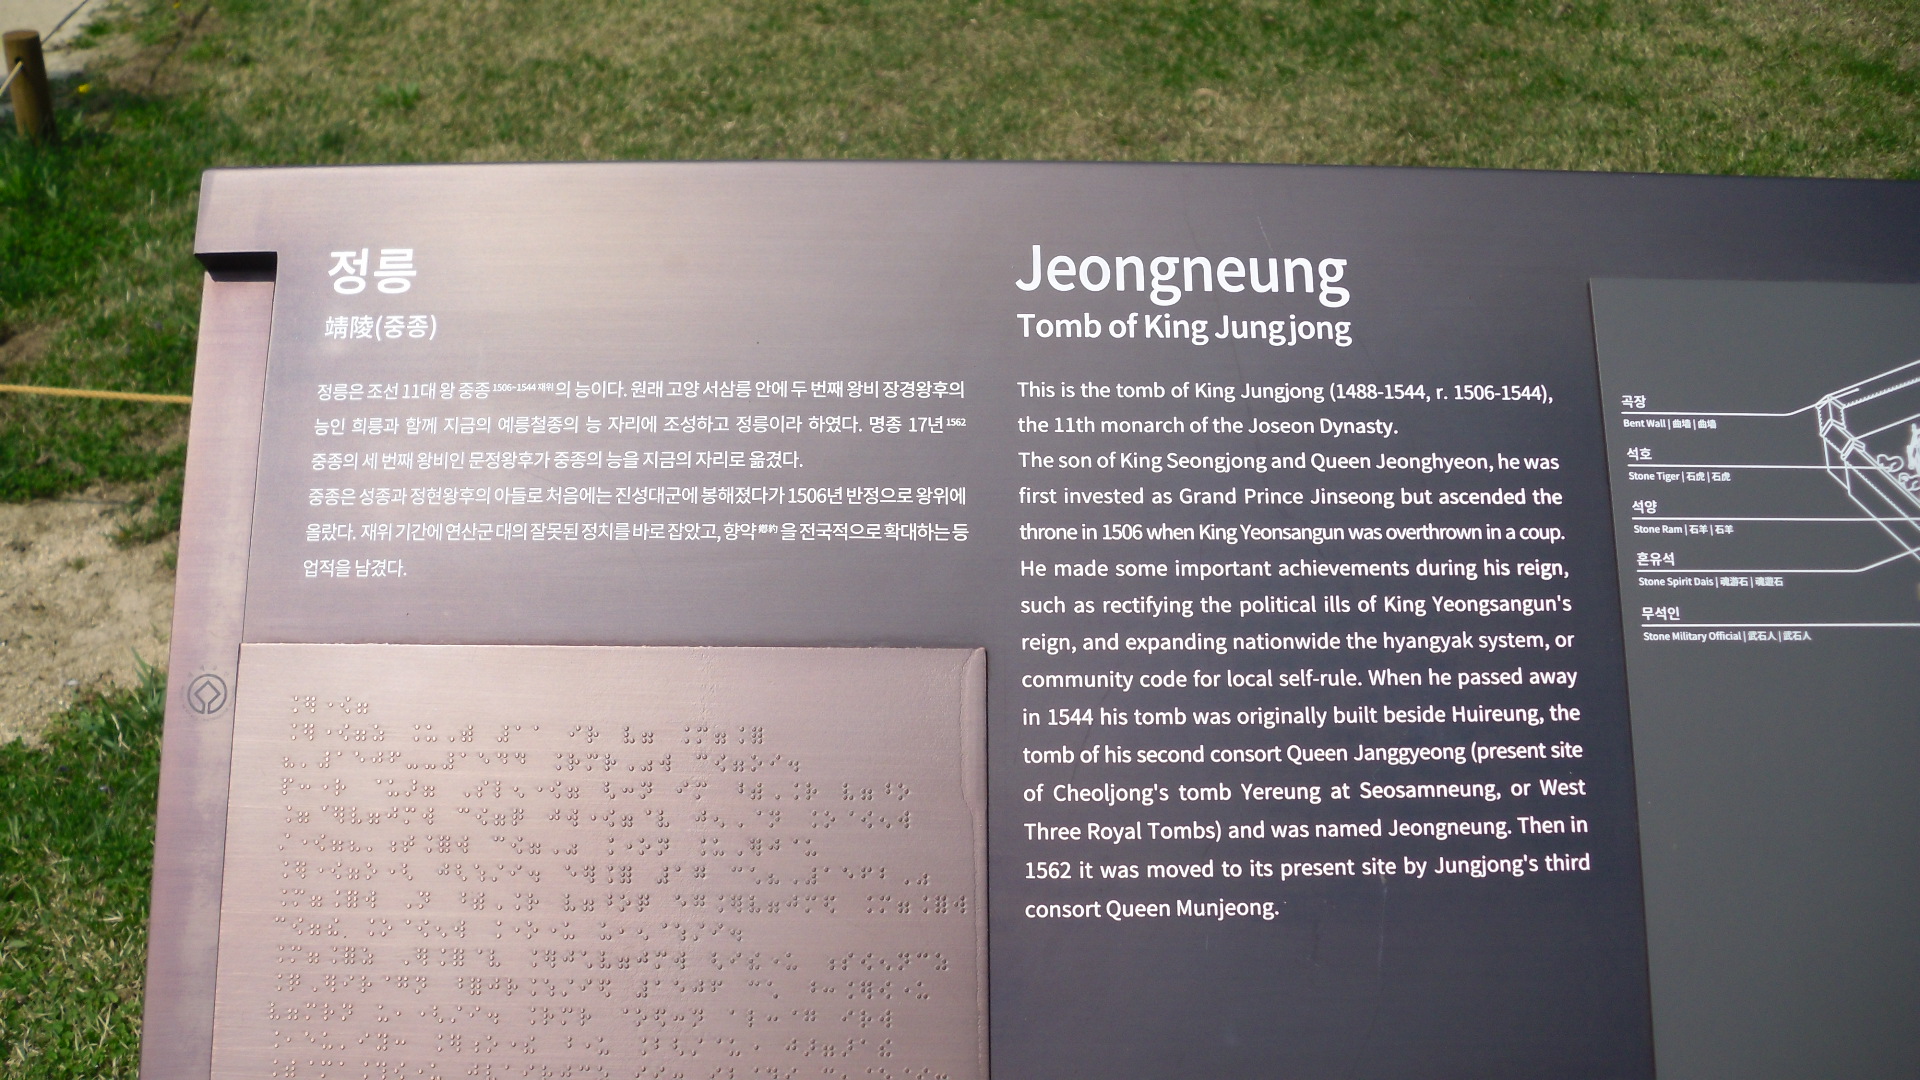 정릉
靖陵(중종)
정릉은 조선 11대 왕 중종 1506~1544 재위 의 능이다. 원래 고양 서삼릉 안에 두 번째 왕비 장경왕후의
능인 희릉과 함께 지금의 예릉철종의 능 자리에 조성하고 정릉이라 하였다. 명종 17년 1562
중종의 세 번째 왕비인 문정왕후가 중종의 능을 지금의 자리로 옮겼다.
중종은 성종과 정현왕후의 아들로 처음에는 진성대군에 봉해졌다가 1506년 반정으로 왕위에
올랐다. 재위 기간에 연산군 대의 잘못된 정치를 바로 잡았고, 향약 鄕約 을 전국적으로 확대하는 등
업적을 남겼다.
Jeongneung
Tomb of King Jungjong
This is the tomb of King Jungjong (1488-1544, r. 1506-1544),
the 11th monarch of the Joseon Dynasty.
The son of King Seongjong and Queen Jeonghyeon, he was
first invested as Grand Prince Jinseong but ascended the
throne in 1506 when King Yeonsangun was overthrown in a coup.
He made some important achievements during his reign,
such as rectifying the political ills of King Yeongsangun's
reign, and expanding nationwide the hyangyak system, or
community code for local self-rule. When he passed away
in 1544 his tomb was originally built beside Huireung, the
tomb of his second consort Queen Janggyeong (present site
of Cheoljong's tomb Yereung at Seosamneung, or West
Three Royal Tombs) and was named Jeongneung. Then in
1562 it was moved to its present site by Jungjong's third
consort Queen Munjeong.
곡장
Bent Wall | 曲墻 | 曲墻
석호
Stone Tiger | 石虎 | 石虎
석양
Stone Ram | 石羊 | 石羊
혼유석
Stone Spirit Dais | 魂遊石 | 魂遊石
무석인
Stone Military Official | 武石人 | 武石人